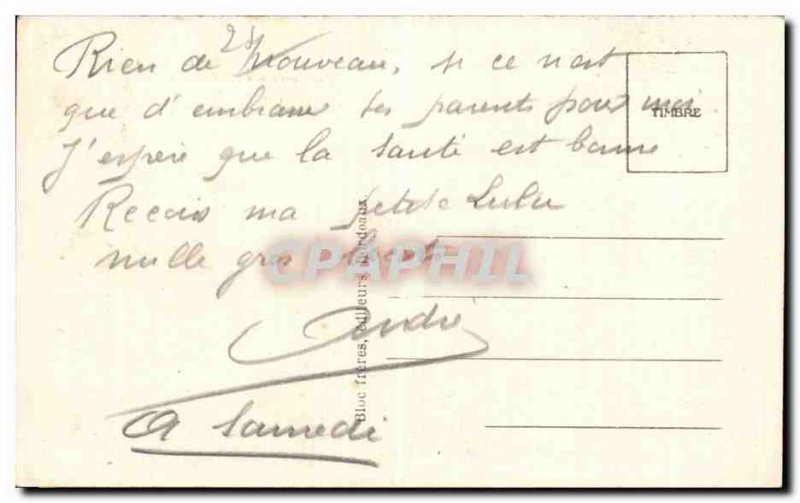 Rien de Nouveau, si ce n'est
que d'embrasser tes parents pour moi
TIMBRE
J'espère que la santé est bonne
Recois ma petite Lulu
mille gros
CPAPHIL
André
A Samedi
Bloc frères, éditeurs, Bordeaux